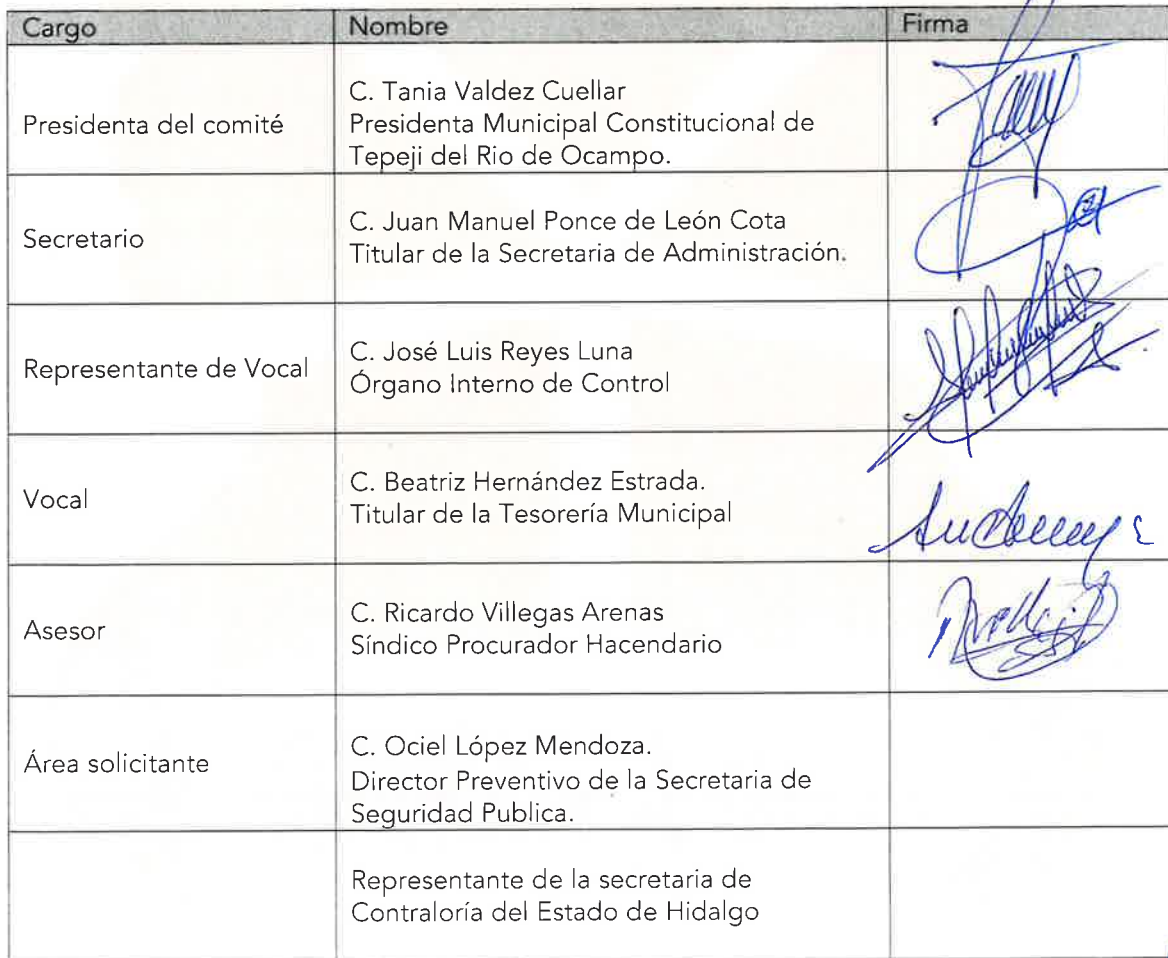 Cargo Nombre Firma
Presidenta del comité
C. Tania Valdez Cuellar
Presidenta Municipal Constitucional de
Tepeji del Rio de Ocampo.
Secretario
C. Juan Manuel Ponce de León Cota
Titular de la Secretaria de Administración.
Representante de Vocal
C. José Luis Reyes Luna
Órgano Interno de Control
Vocal
C. Beatriz Hernández Estrada.
Titular de la Tesorería Municipal
Asesor
C. Ricardo Villegas Arenas
Síndico Procurador Hacendario
Área solicitante
C. Ociel López Mendoza.
Director Preventivo de la Secretaria de
Seguridad Publica.
Representante de la secretaria de
Contraloría del Estado de Hidalgo